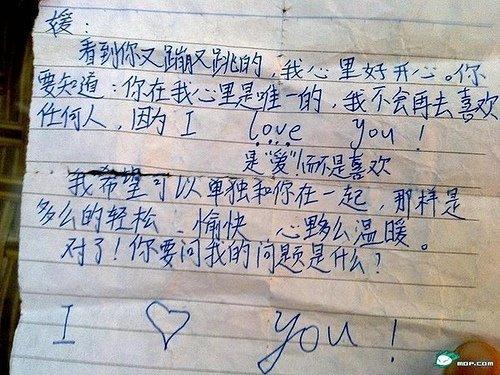 媛：
看到你又蹦又跳的，我心里好开心。你
要知道：你在我心里是唯一的，我不会再去喜欢
任何人，因为 I love you！
是“爱”而不是喜欢
我希望可以单独和你在一起，那样是
多么的轻松、愉快 心多么温暖。
对了！你要问我的问题是什么？
I ♡ you！
MOP.COM